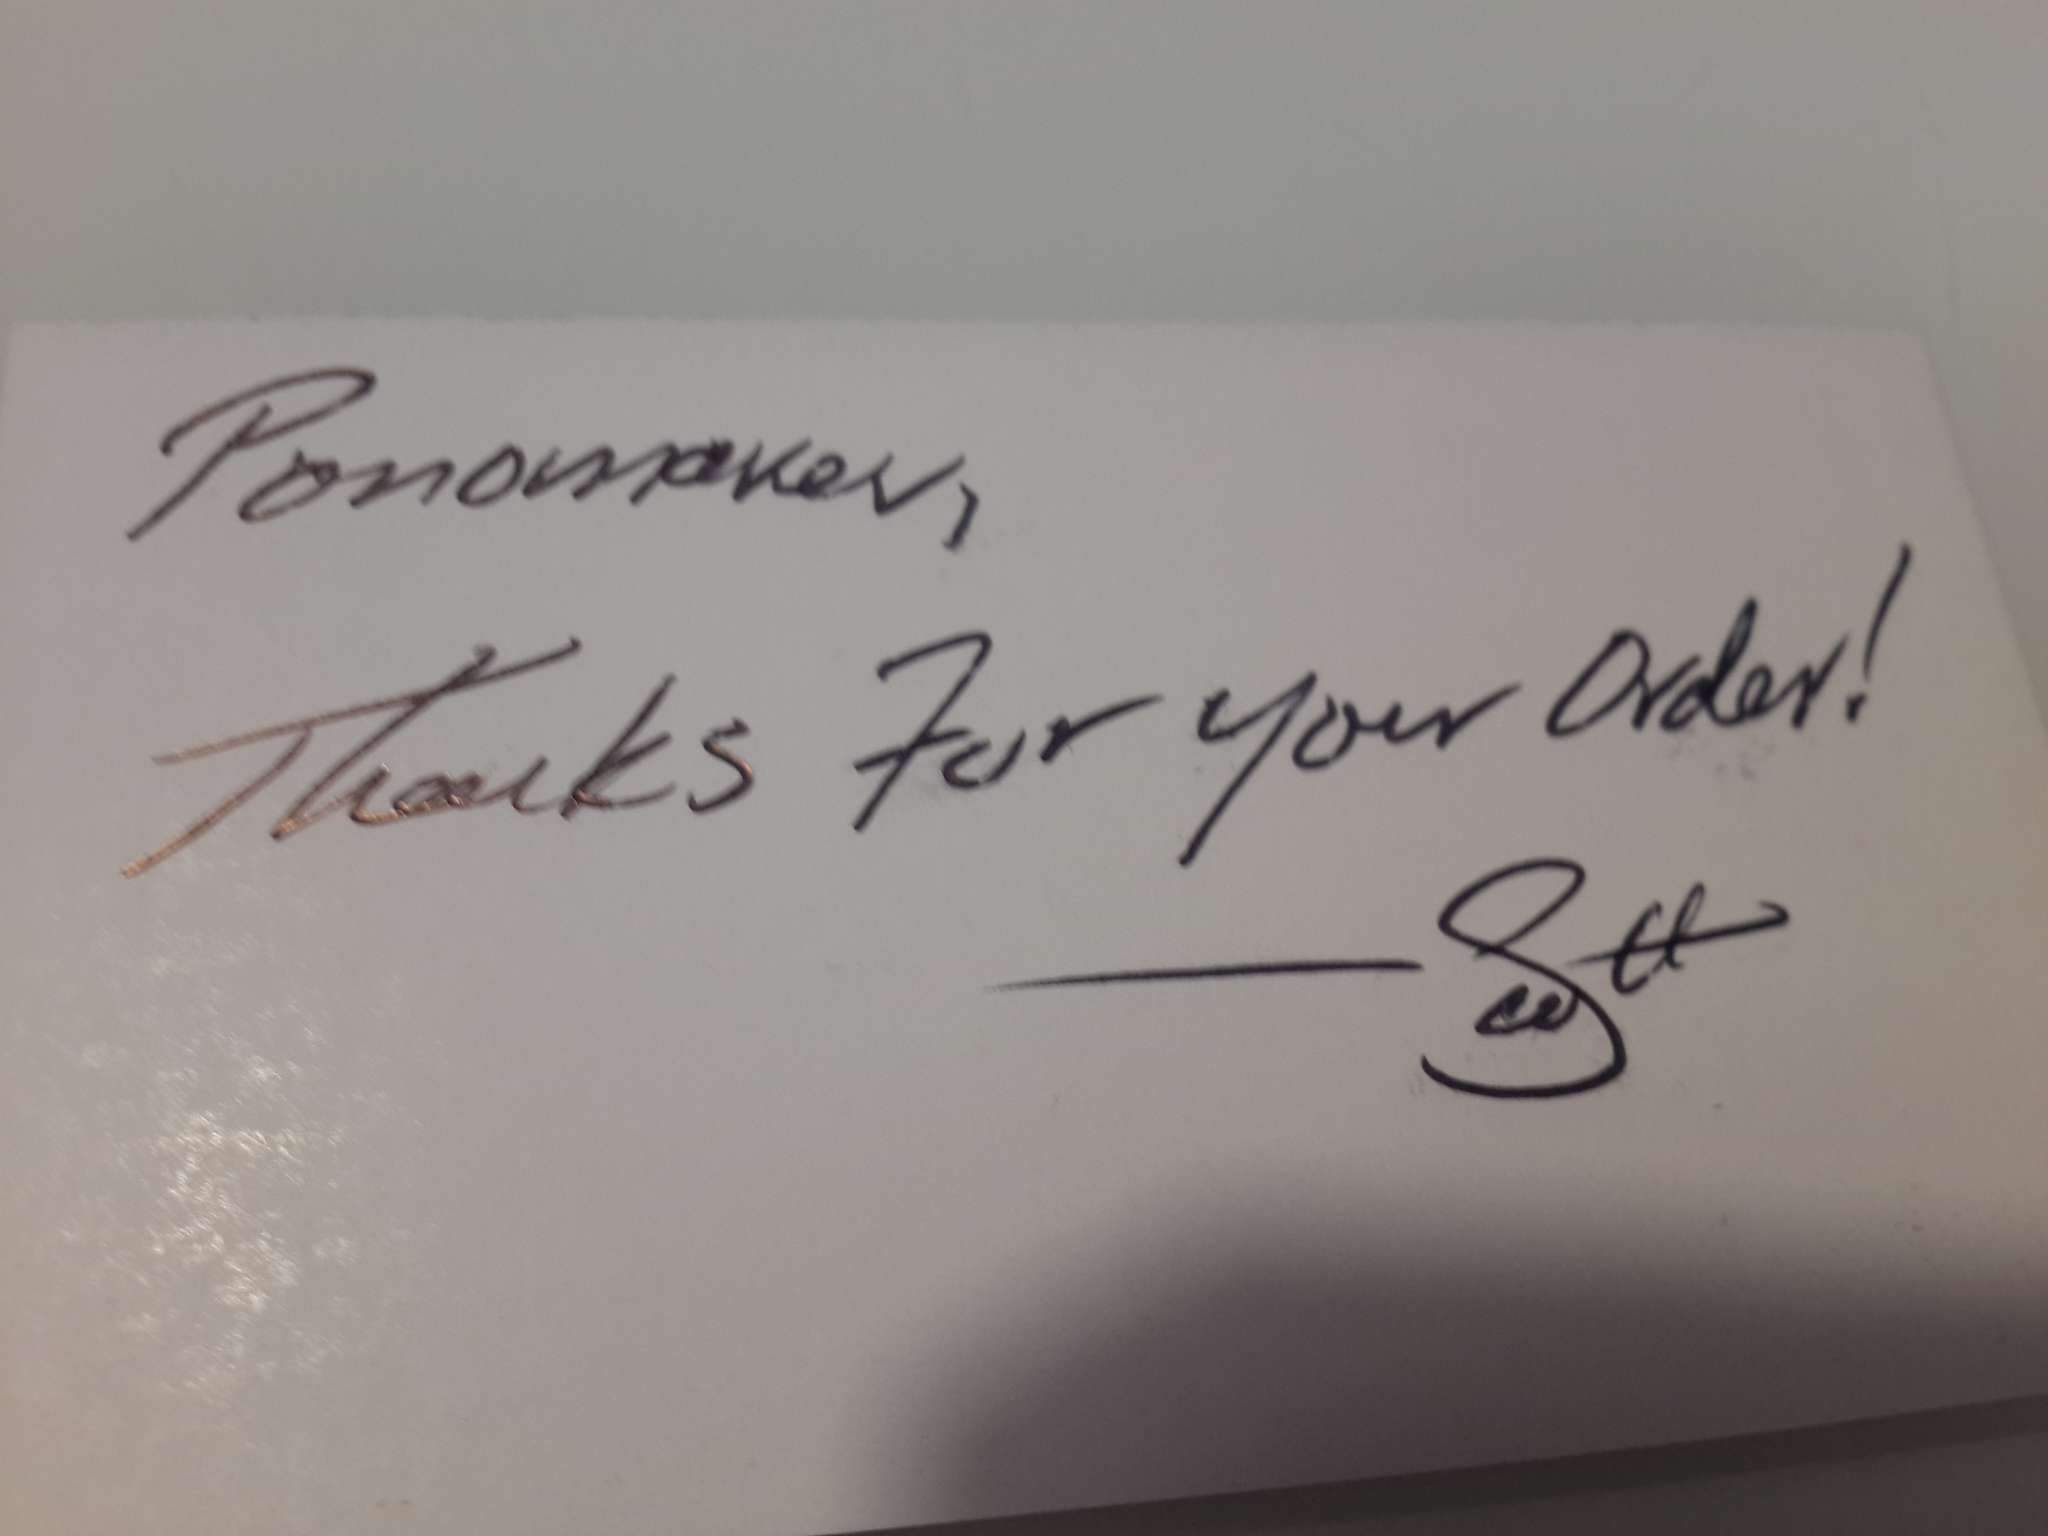 Ponomaker,
Thanks For your Order!
— Scott